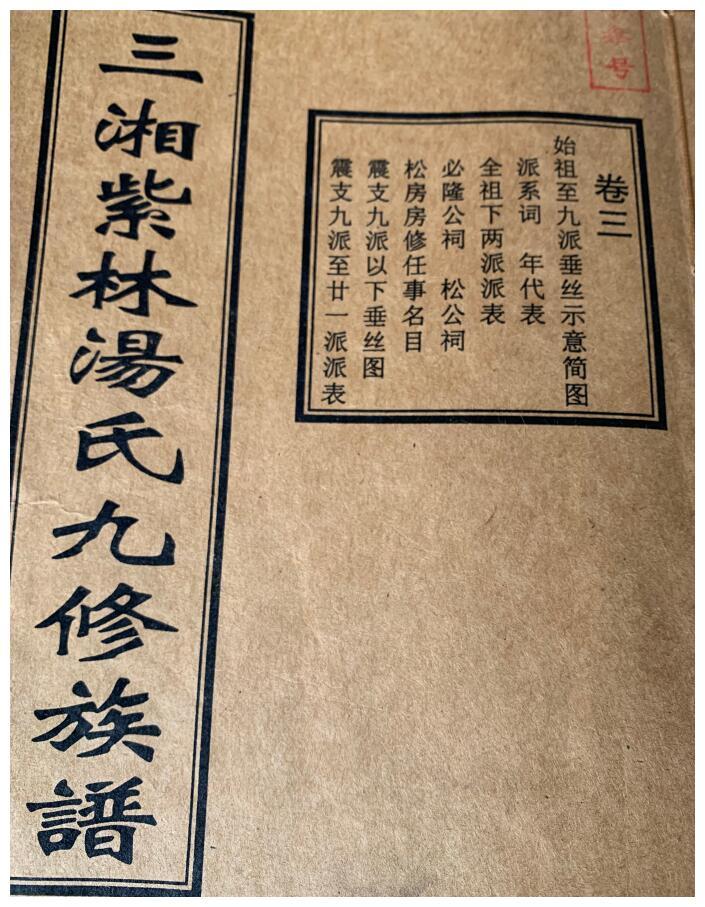 三湘紫林湯氏九修族譜
卷三
始祖至九派垂丝示意简图
派系词 年代表
全祖下两派派表
必隆公祠 松公祠
松房房修任事名目
震支九派以下垂丝图
震支九派至廿一派派表
号